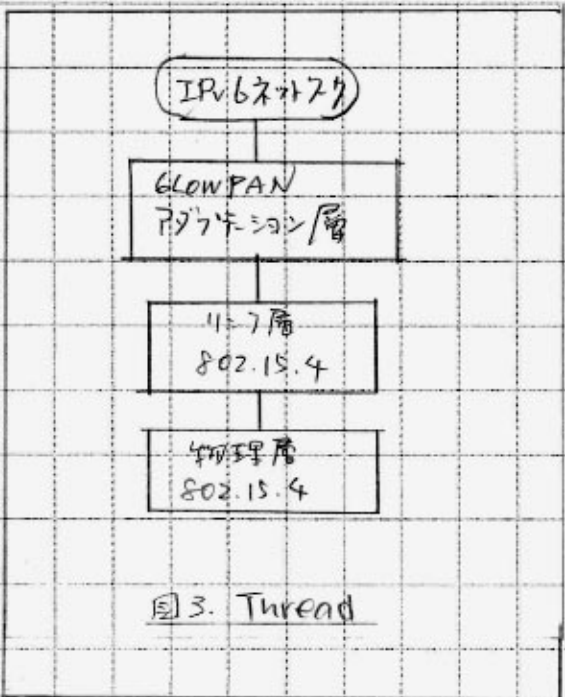 IPv6ネットワク
6LOWPAN
アダプテーション層
リンク層
802.15.4
物理層
802.15.4
図3. Thread